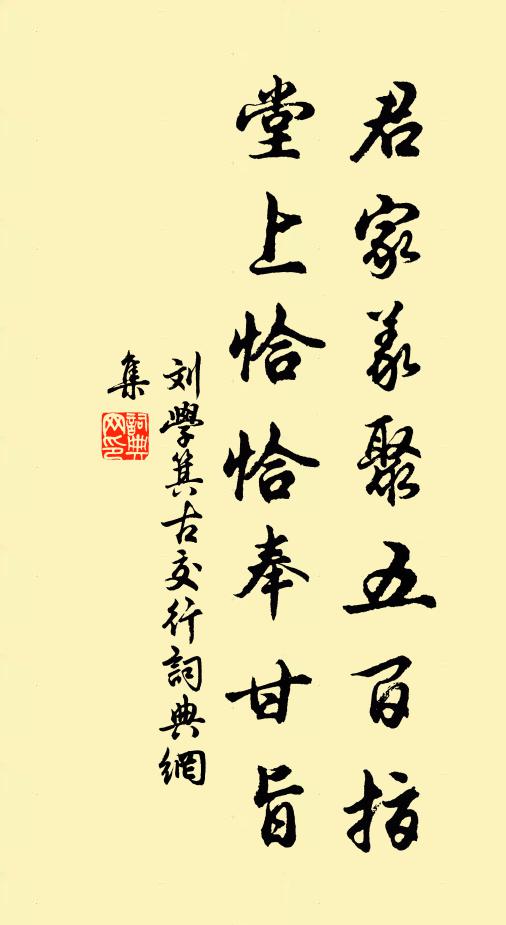 君家義聚五百指
堂上恰恰奉甘旨
刘學箕古交行詞典網
集
詞典網印